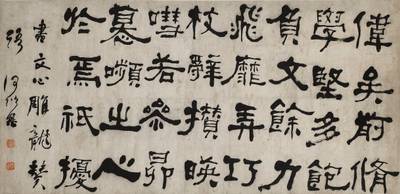 偉矣前脩
學堅多飽
負文餘力
飛靡弄巧
枝辭攢暎
嘒若參昴
慕嚬之心
於焉祇擾
書文心雕龍贊
何紹基